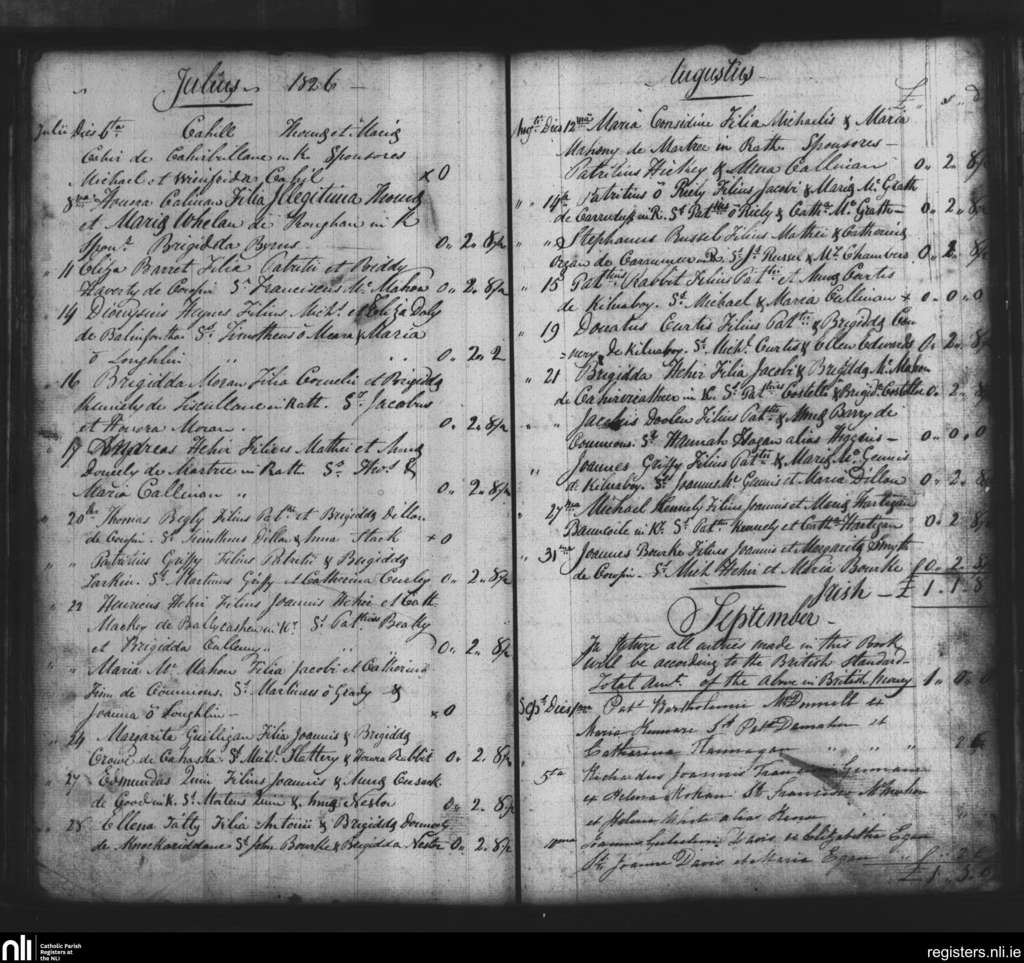 Julius 1826
Julii Dies 6ta Cahill Thomæ et Mariæ
Cahir de Cahirbullane in K Sponsores
Michael et Winifrida Cahil x 0
8va Honora Calinan Filia Illegitima Thomæ
et Mariæ Whelan de in K
Spons. Brigidda Byrns 0 " 2 " 8½
" 11 Eliza Barret Filia Patritii et Biddy
Haverty de Corofin Ss Franciscus Mc Mahon 0 " 2 " 8½
" 14 Dionysius Hogues Filius Michl. et Eliza Daly
de Ss. Timotheus ō Meara & Maria
ō Loughlin " " " 0 " 2 " 2
" 16 Brigidda Moran Filia Cornelii et Brigidda
Kennely de Liscullane in Rath. Ss Jacobus
et Honora Moran " 0 " 2 " 8½
" 19 Andreas Hehir Filius Mathei et Annæ
Donnely de Martree in Rath Ss Thos. &
Maria Callinan " 0 " 2 " 8½
" 20th Thomas Begly Filius Pattii et Brigidda Dillon
de Corofin. Ss Timotheus Dillon & Anna Slack x 0
" " Patritius Griffy Filius Patritii & Brigidda
Larkin. Ss. Martinus Griffy et Catherina Curley 0 " 2 " 8½
" 22 Henricus Hehir Filius Joannis Hehir et Cath.
Mackey de Ballycashen in K. Ss Patthius Beatty
et Brigidda " " 0 " 2 " 8½
" " Maria Mc Mahon Filia Jacobi et Catherinæ
Finn de Commons. Ss. Martinus ō Grady &
Joanna ō Loughlin x 0
" 24 Margarita Guilligan Filia Joannis & Brigidda
Crowe de Ss. Michl. Slattery & Honora Rabbit 0 " 2 " 8½
" 27 Edmundas Quin Filius Joannis & Annæ Cusack
de in K. Ss. Quin & Annæ Neslor 0 " 2 " 8½
" 28 Ellena Talty Filia Antonii & Brigidda
de Knockariddane Ss John Bourke & Brigidda Neslor 0 " 2 " 8½
Augustius
£ " s " d
Augti. Dies 12ma Maria Considine Filia Michaelis & Maria
de Martree in Rath Sponsores
Patritius Hickey & Anna Callinan 0 " 2 " 8½
" " 14th Patritius ō Riely Filius Jacobi & Mariæ Mc Grath
de in K. Ss Patthius ō Riely & Cathe. Mc Grath 0 " 2 " 8½
" " " Stephanus Russel Filius Mathei & Catherinæ
Organ de in K. Ss. Js. Russel & My. Chambers. 0 " 2 " 8½
" 15 Patthius Rabbit Filius Pattii & Annæ Curtis
de Kilnaboy. Ss. Michael & Maria Callinan x 0 " 0 " 0
" 19 Donatus Curtis Filius Pattii & Brigidda Con-
=nery de Kilnaboy. Ss. Michl. Curtis & Ellen Edwards 0 " 2 " 8½
" 21 Brigidda Hehir Filia Jacobi & Brigidda Mc Mahon
de in K. Ss Patthius Costello & Brigida. Costelloe 0 " 2 " 8½
" " Jacobus Doolen Filius Pattii & Annæ Barry de
Commons. Ss. Hannah Hogan alias Higgins 0 " 0 " 0
" " Joannes Griffy Filius Pattii & Mariæ Mc Gennis
de Kilnaboy. Ss. Joannes Mc Gennis et Maria Dillon 0 " 2 " 8½
" 27ma Michael Kennely Filius Joannis et Mariæ Hartigan
in K. Ss Patt. Kennely et Cathe. Hartigan 0 " 2 " 8½
" 31ma Joannes Bourke Filius Joannis et Margarita Smyth
de Corofin. Ss. Mich Hehir et Maria Bourke 0 " 2 "
Irish — £ 1 " 1 " 8
September
In future all entries made in this Book
will be according to the British Standard
Total Amt. of the above in British Money 1 " 0 " 0
Sept. Dies Patt Bartholomei McDonnell ex
Maria Ss Patt et
Catharina Flannagan " " " 2 " 6
" 5ta Richardus Joannis
ex Helena Ss Franciscus McMahon
et Helena alias
Davis ex Elizabetha Egan
Ss. Joanne Davis et Maria Egan
£ 1 " 5 " 0
nli
Catholic Parish
Registers at
the NLI
registers.nli.ie